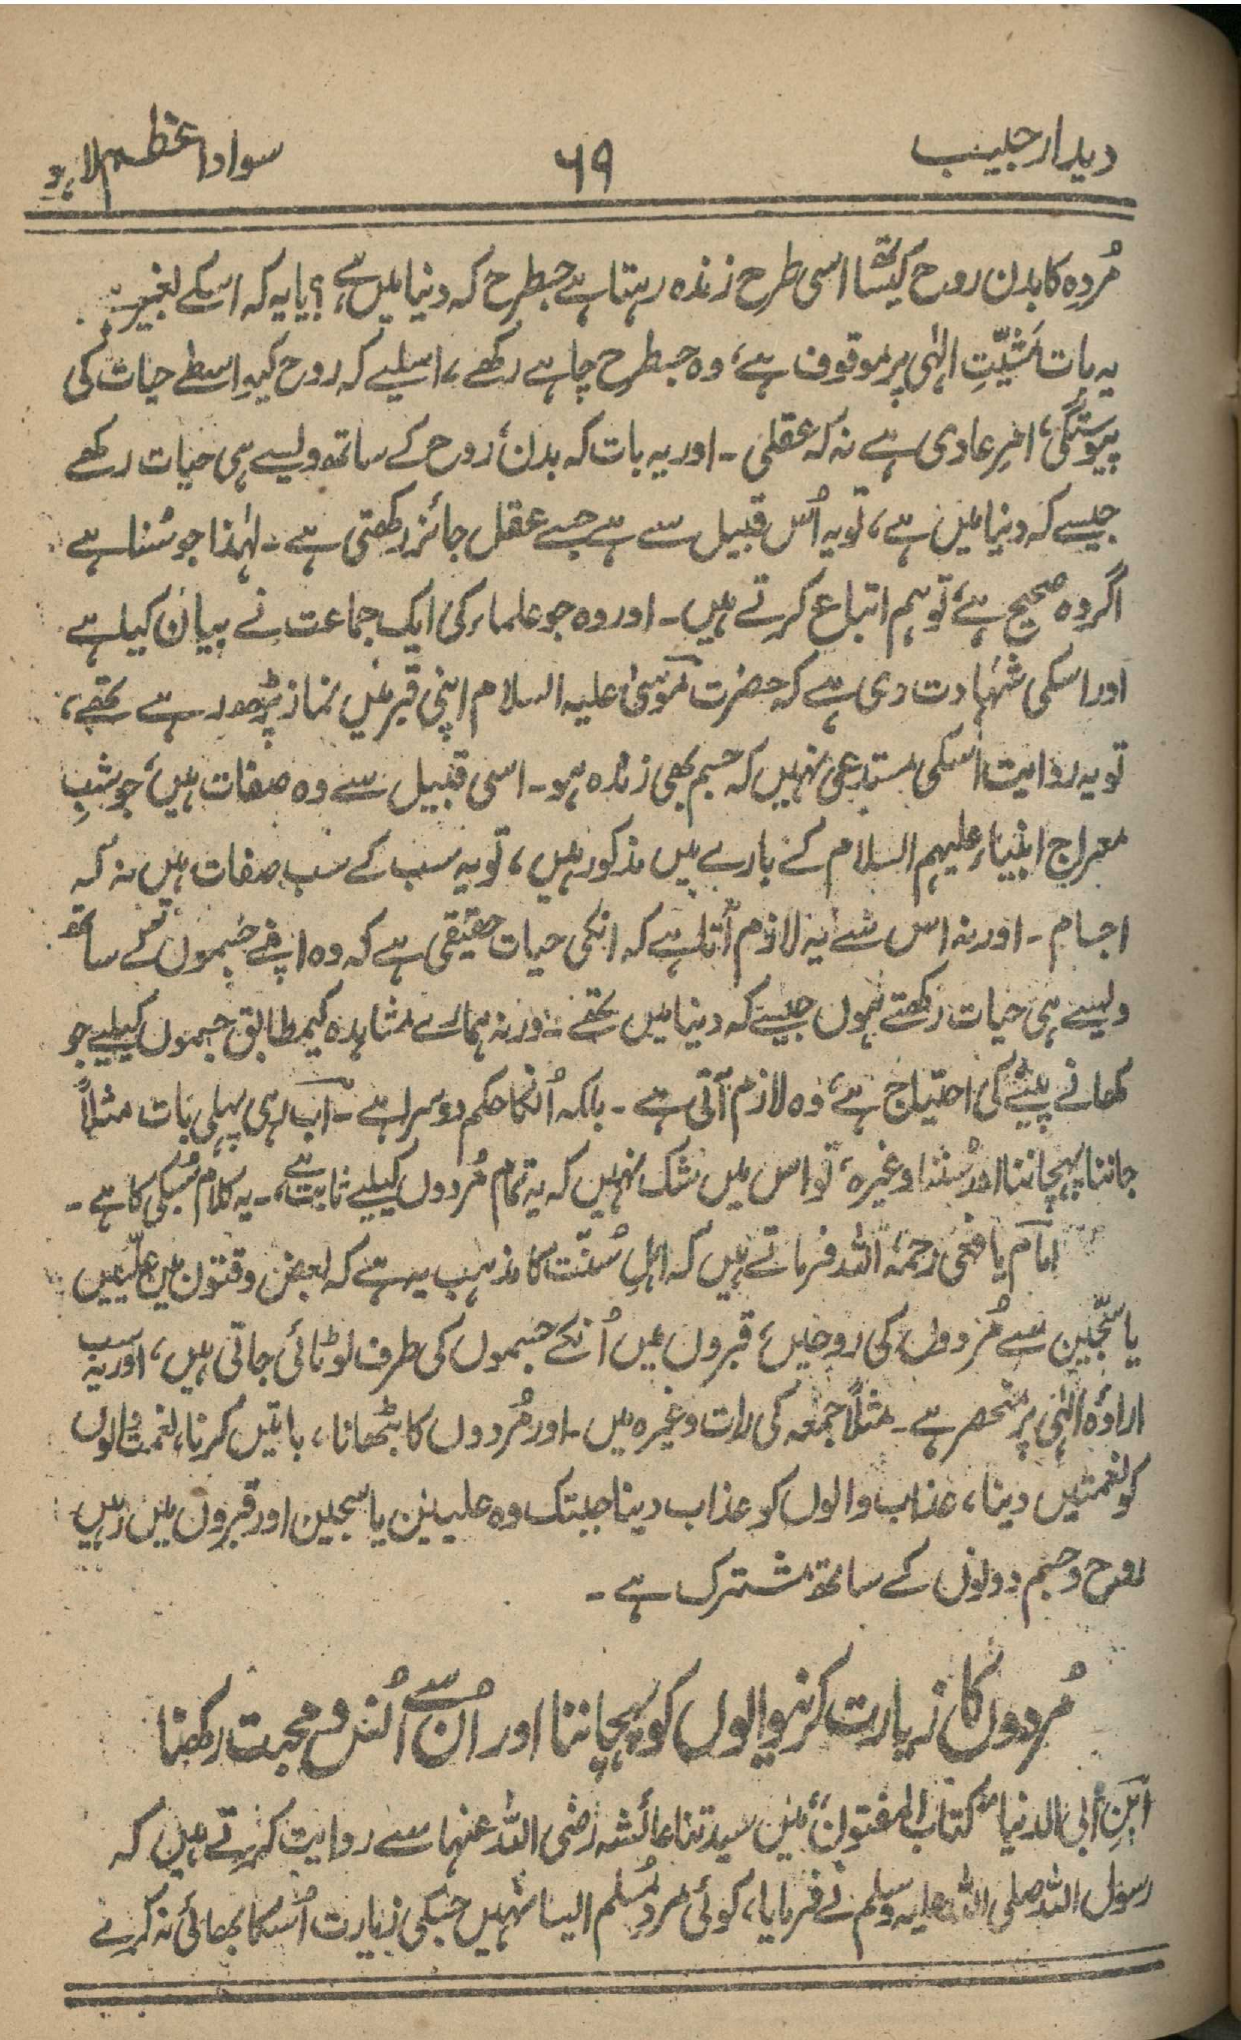 دیدار حبیب
۶۹
سواد اعظم لاہور
مُردہ کا بدن روح کیساتھ اسی طرح زندہ رہتا ہے جسطرح کہ دنیا میں ہے؟ یا یہ کہ اسکے بغیر۔
یہ بات مَشیّتِ الٰہی پر موقوف ہے، وہ جسطرح چاہے رکھے، اسلیے کہ روح کیواسطے حیات کی
پیوستگی، امرِ عادی ہے نہ کہ عقلی۔ اور یہ بات کہ بدن، روح کے ساتھ ویسے ہی حیات رکھے
جیسے کہ دنیا میں ہے، تو یہ اُس قبیل سے ہے جسے عقل جائز رکھتی ہے۔ لہٰذا جو سُنا ہے
اگر وہ صحیح ہے، تو ہم اتباع کرتے ہیں۔ اور وہ جو علماء کی ایک جماعت نے بیان کیا ہے
اور اسکی شہادت دی ہے کہ حضرت موسیٰ علیہ السلام اپنی قبر میں نماز پڑھ رہے تھے،
تو یہ روایت اسکی مستدعی نہیں کہ جسم بھی زندہ ہو۔ اسی قبیل سے وہ صفات ہیں، جو شبِ
معراج انبیاء علیہم السلام کے بارے میں مذکور ہیں، تو یہ سب کے سب صفات ہیں نہ کہ
اجسام۔ اور نہ اس سے یہ لازم آتا ہے کہ انکی حیات حقیقی ہے کہ وہ اپنے جسموں کے ساتھ
ویسے ہی حیات رکھتے ہوں جیسے کہ دنیا میں تھے۔ ورنہ ہمارے مشاہدہ کیمطابق جسموں کیلیے جو
کھانے پینے کی احتیاج ہے، وہ لازم آتی ہے۔ بلکہ اُنکا حکم دوسرا ہے۔ اب رہی پہلی بات مثلاً
جاننا پہچاننا اور سُننا وغیرہ، تو اس میں شک نہیں کہ یہ تمام مُردوں کیلیے ثابت ہے،۔ یہ کلام سُبکی کا ہے۔
امام یافعی رحمۃ اللہ فرماتے ہیں کہ اہلِ سُنّت کا مذہب یہ ہے کہ بعض وقتوں میں علّیین
یا سجّین سے مُردوں کی روحیں، قبروں میں اُنکے جسموں کی طرف لوٹائی جاتی ہیں، اور یہ سب
ارادۂ الٰہی پر منحصر ہے۔ مثلاً جمعہ کی رات وغیرہ میں۔ اور مُردوں کا بٹھانا، باتیں کرنا، نعمت والوں
کو نعمتیں دینا، عذاب والوں کو عذاب دینا جبتک وہ علیین یا سجین اور قبروں میں رہیں
روح و جسم دونوں کے ساتھ مشترک ہے۔
مُردوں کا زیارت کرنیوالوں کو پہچاننا اور اُن سے اُنس و محبت رکھنا
ابن ابی الدنیا ”کتاب المفتون“ میں سیدتنا عائشہ رضی اللہ عنہا سے روایت کرتے ہیں کہ
رسول اللہ صلی اللہ علیہ وسلم نے فرمایا، کوئی مردِ مُسلم ایسا نہیں جسکی زیارت اُسکا بھائی نہ کرے